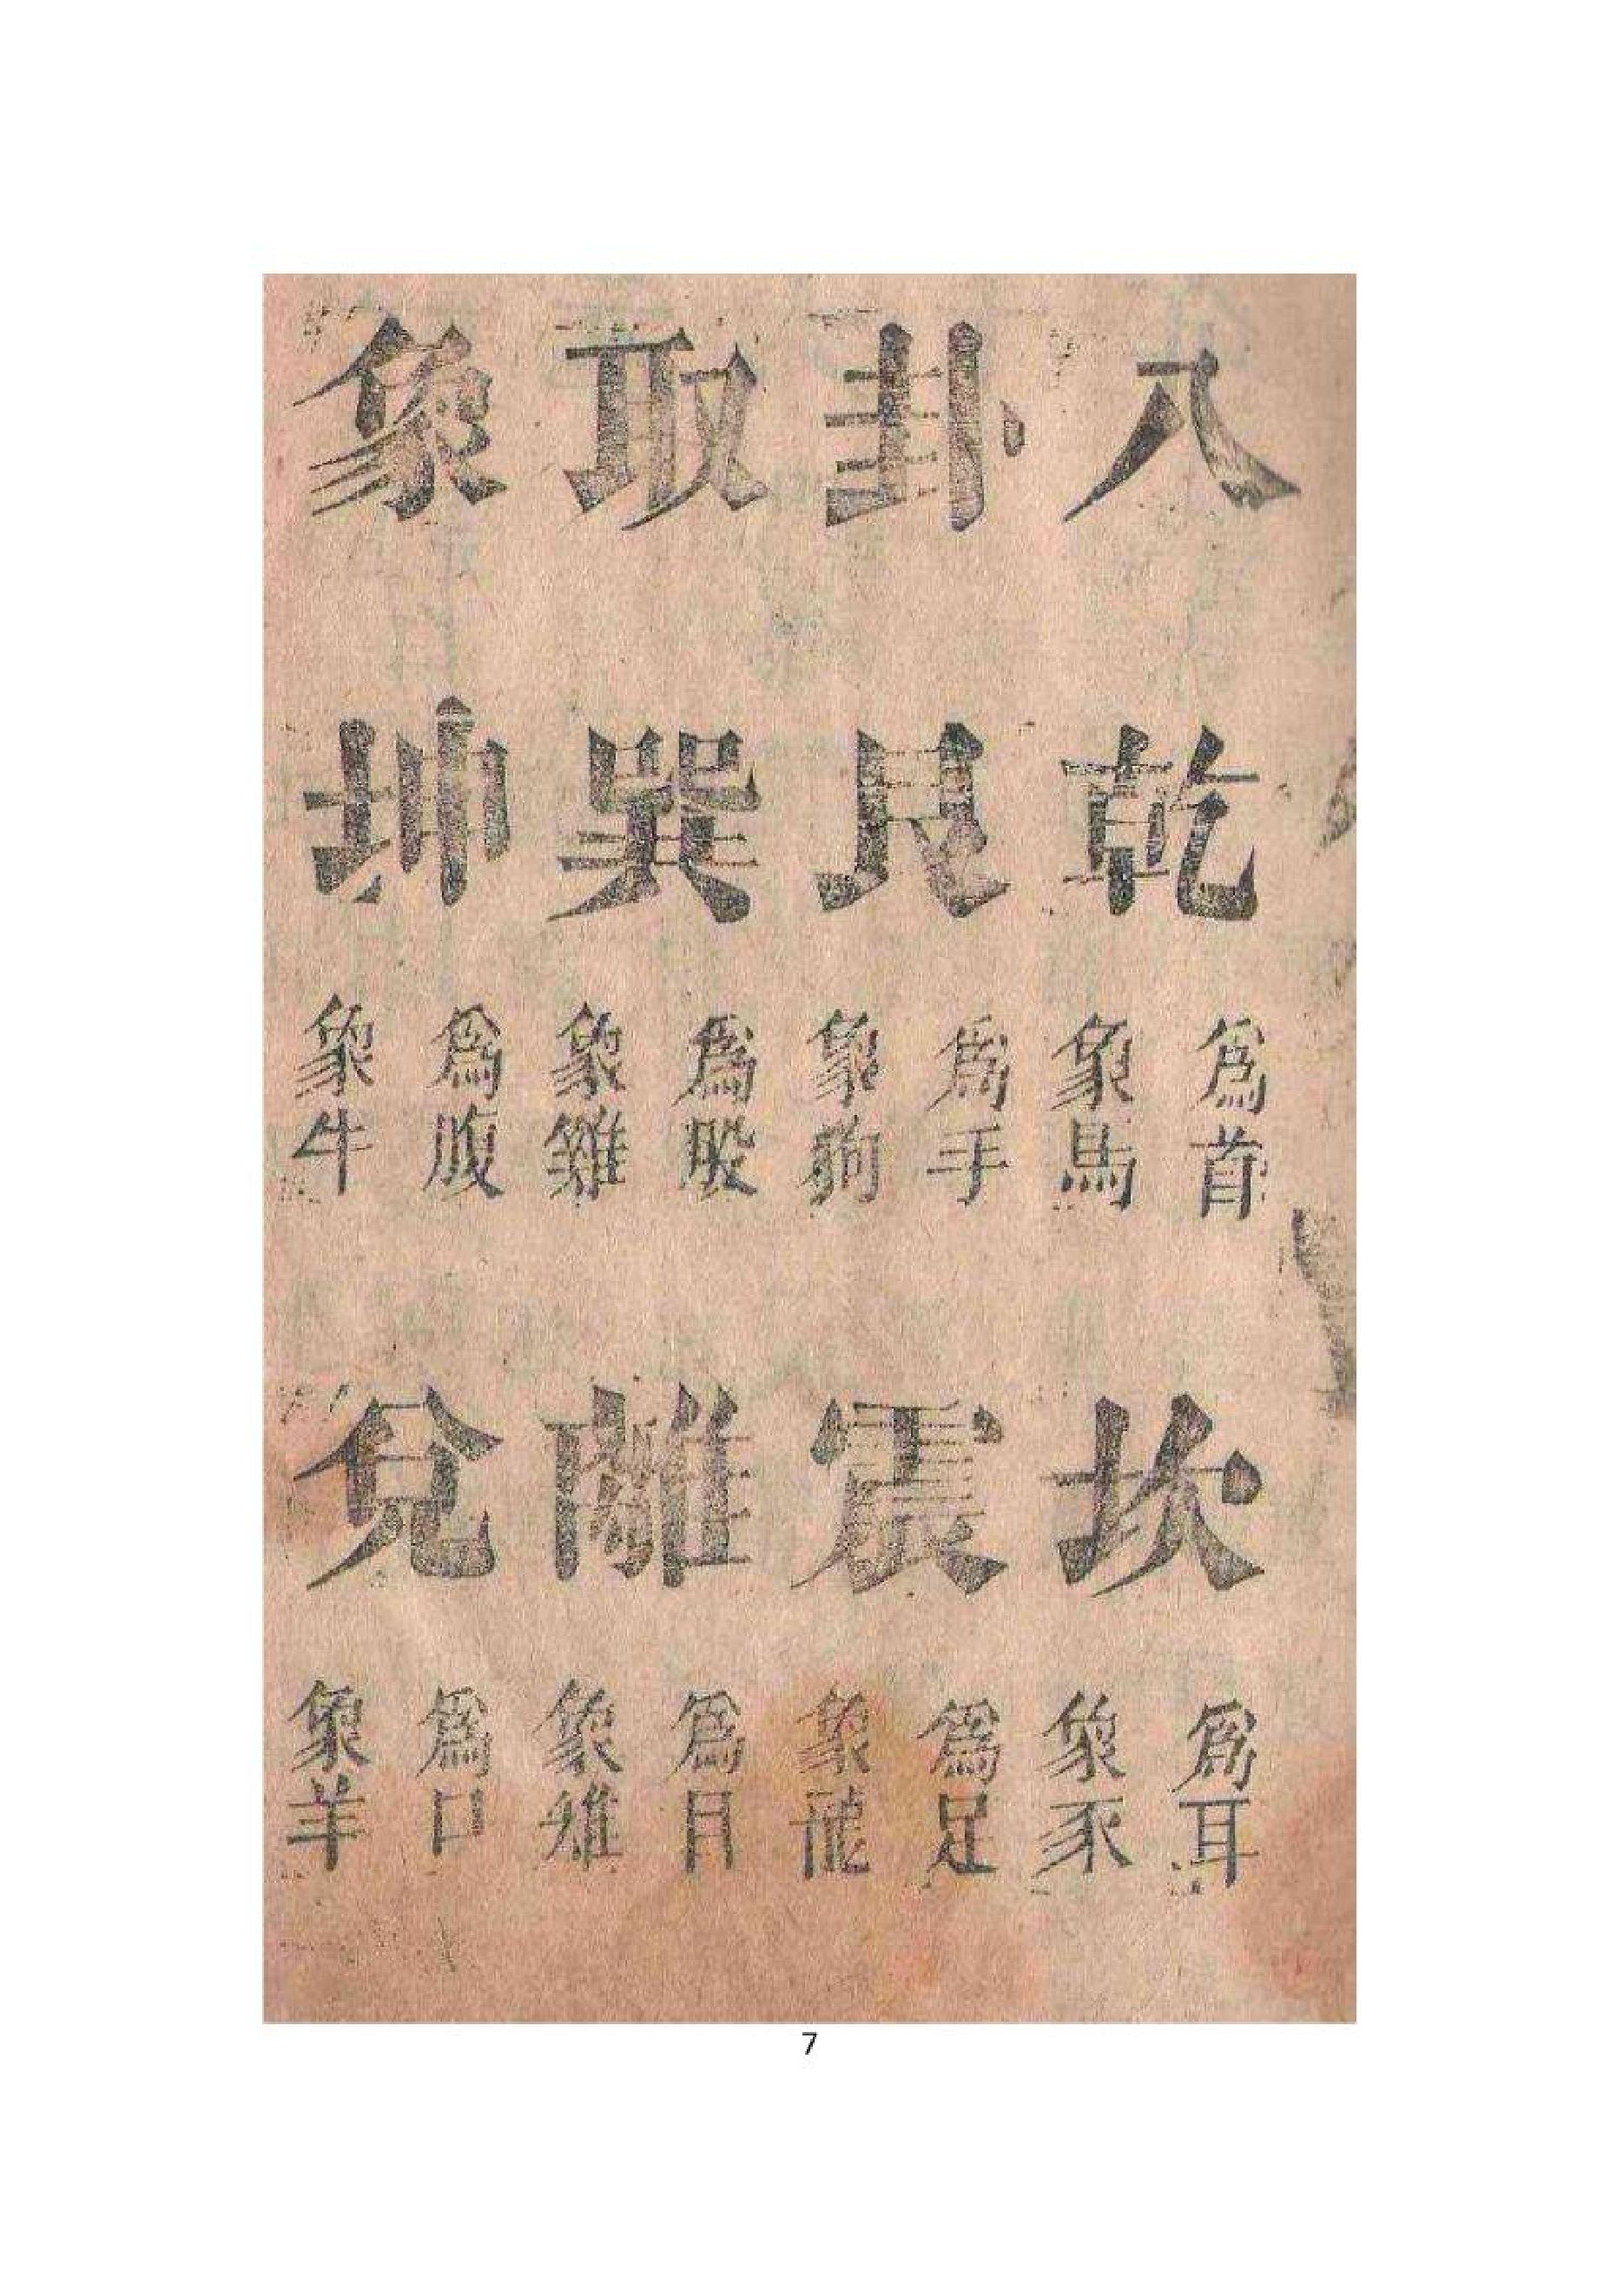 八卦取象
乾
爲首
象馬
艮
爲手
象狗
巽
爲股
象雞
坤
爲腹
象牛
坎
爲耳
象豕
震
爲足
象龍
離
爲目
象雉
兌
爲口
象羊
7